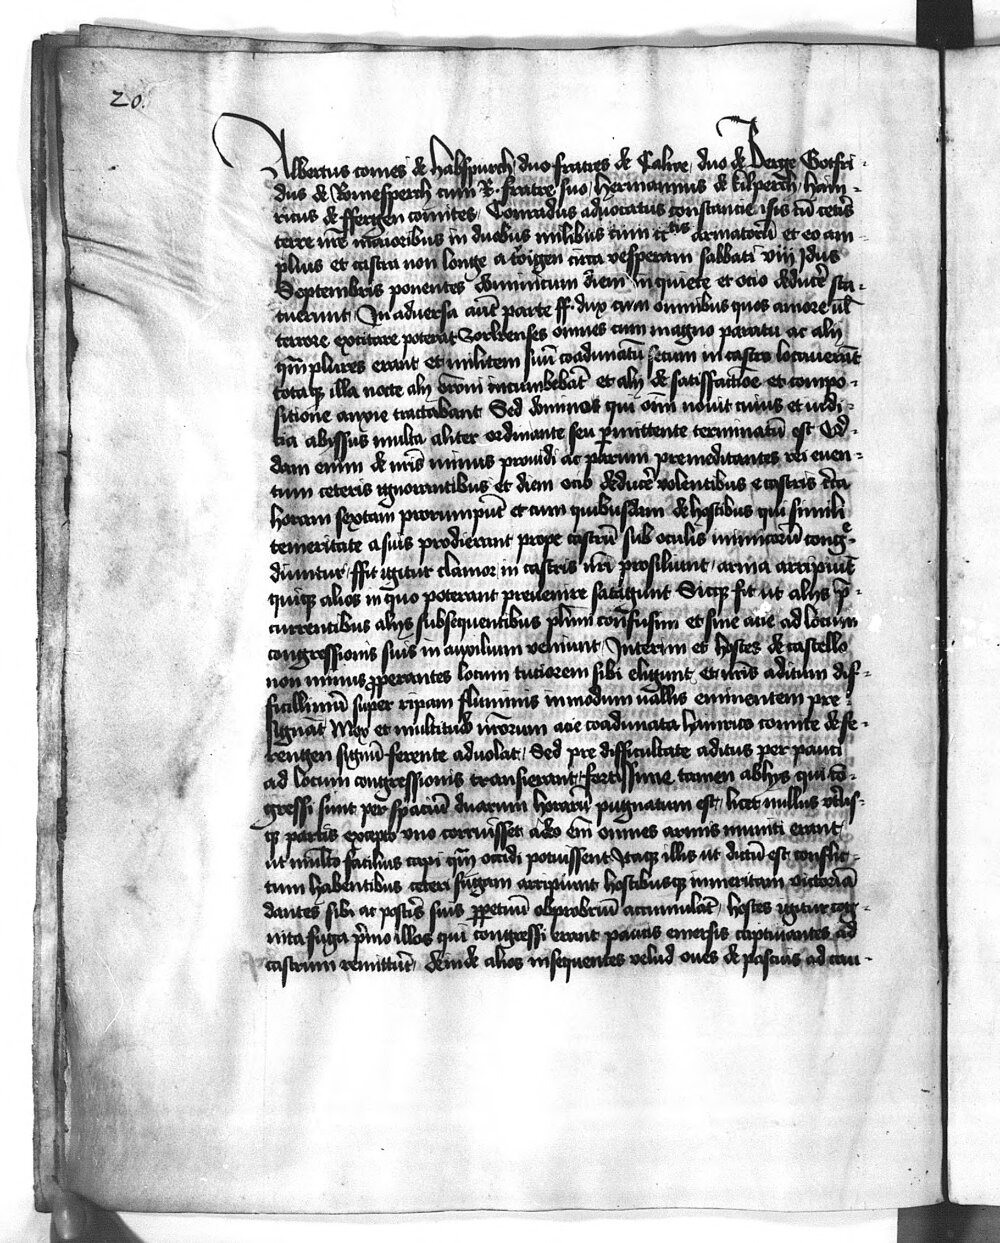 20.
Albertus comes de Habspurch duo fratres de Calwe, duo de Berge Gotfri-
dus de Romesperch cum R. fratre suo, Hermannus de kilperch, Hain-
ricus de ffergen comites, Conradus advocatus constancie
terre nr̄e maioribus in duobus milibus cum armatorū et eo am
plius et castra non longe a tv̊igen circa vesperam sabbati viij Jdus
Septembris ponentes dominicum diem in quiete et ocio deducẽ sta-
tuerunt, In adversa aūt parte ff. dux cum omnibus quos amore ul̄
terrore excitare poterat omnes cum magno paratu ac alij
qm̄ plures erant et militem suū coadunatū secum in castro locaverūt
totaqȝ illa nocte alij or̄oni incumbebāt et alij de satisfacc̄ioe et compo-
sitione anxie tractabant Sed dominus qui om̄i novit cuius et iudi-
cia abyssus multa aliter ordinante seu p̱mittente terminatū est Qd-
dam enim de nr̄is minus providi ac parum premeditantes rei even-
tum ceteris ignorantibus et diem ocio deducẽ volentibus e castris cīrca
horam sextam prorumpūt et cum quibusdam de hostibus qui simili
temeritate a suis prodierant prope castrū sub oculis inimicorū cong-
diuntur, ffit igitur clamor in castris nr̄i prosiliunt, arma arripiūt
quiqȝ alios in quo poterant prevenire satagunt Sicqȝ fit ut alijs p̄-
currentibus alijs subsequentibus plīmi cōnfusim et sine acie ad locum
congressionis suis in auxilium veniunt, Interim et hostes de castello
non minus ꝓperantes locum tuciorem sibi eligunt, et nr̄is aditum dif-
ficillimū super ripam fluminis in modum vallis eminentem pre-
signāt Mox et multitudo nr̄orum acie coadunata hainrico comite de fe-
rengen signū ferente advolat, Sed pre difficultate aditus per pauci
ad locum congressionis transierant, fortissime tamen ab hijs qui cō-
gressi sunt per spaciū duarum horarū pugnatum est, licet nullus vtr̄is-
qȝ partis excepto vno corruisset adeo em̄ omnes armis muniti erant
ut multo facilius capi qm̄ occidi potuissent Itaqȝ illis ut dictū est conflic-
tum habentibus ceteri fugam arripiunt hostibusqȝ inmeritam victoriā
dantes sibi ac post̄is suis ꝑpetuū obprobriū accumulāt, hostes igitur cog-
nita fuga p̄mo illos qui congressi erant paucis emersis captivantes ad
castrum remittūt, deinde alios insequentes velud oves de pascuis ad cau-